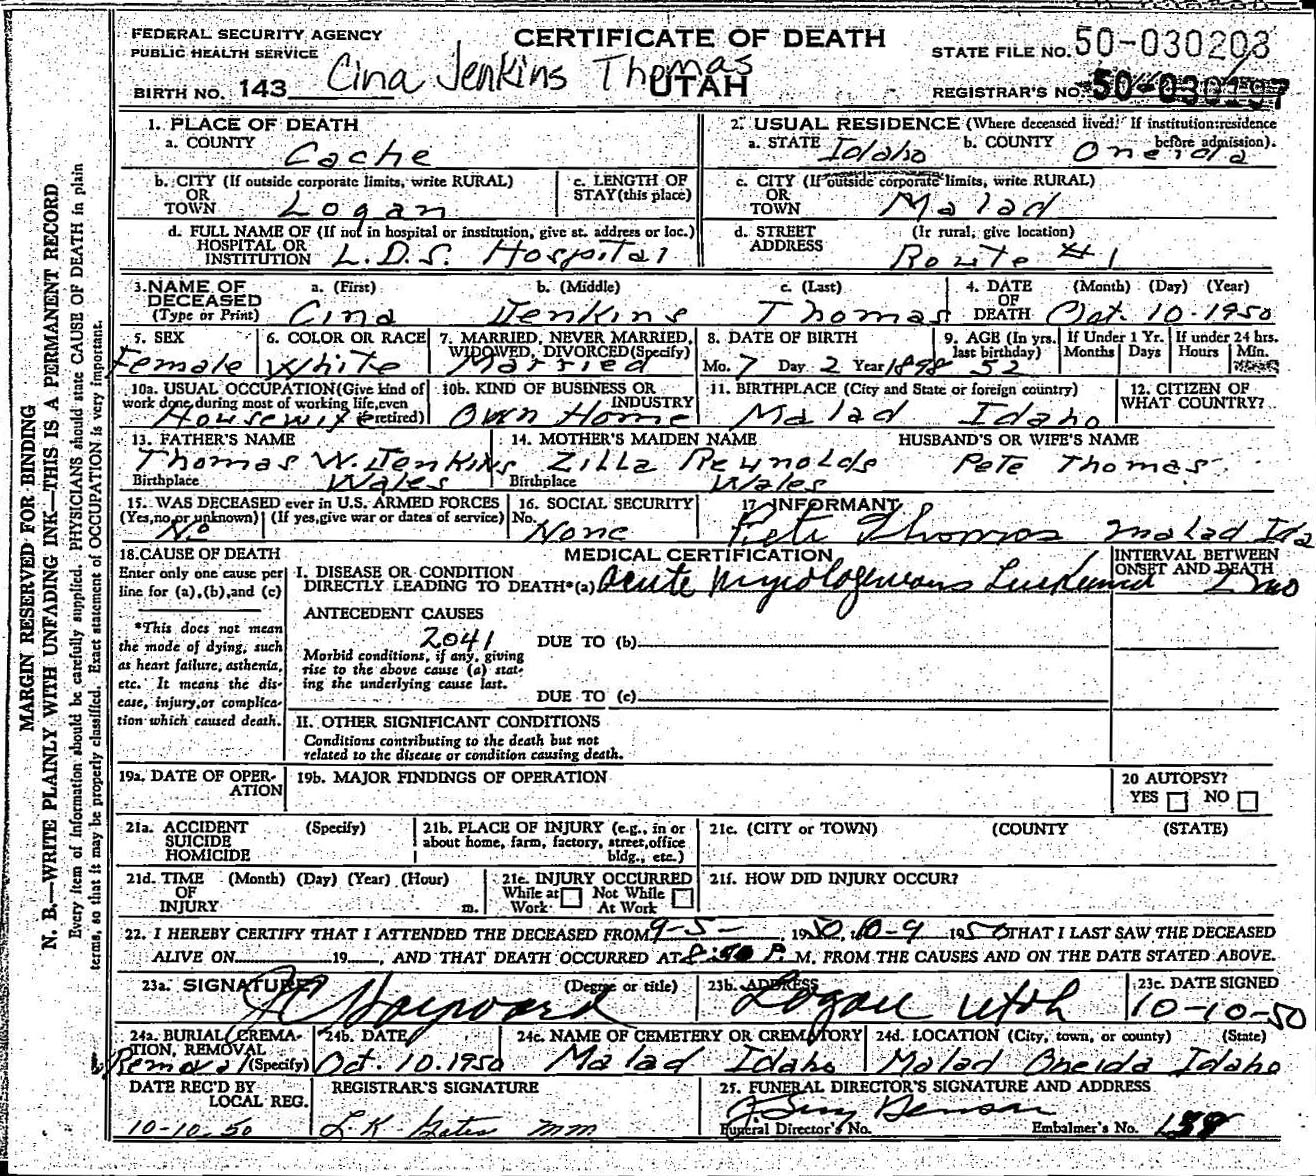 FEDERAL SECURITY AGENCY
PUBLIC HEALTH SERVICE
CERTIFICATE OF DEATH
UTAH
STATE FILE NO. 50-030203
BIRTH NO. 143
Cina Jenkins Thomas
REGISTRAR'S NO. 50-030197
MARGIN RESERVED FOR BINDING
N. B.—WRITE PLAINLY WITH UNFADING INK—THIS IS A PERMANENT RECORD
Every item of Information should be carefully supplied. PHYSICIANS should state CAUSE OF DEATH in plain
terms, so that it may be properly classified. Exact statement of OCCUPATION is very important.
1. PLACE OF DEATH
a. COUNTY Cache
2. USUAL RESIDENCE (Where deceased lived. If institution:residence
before admission).
a. STATE Idaho b. COUNTY Oneida
b. CITY (If outside corporate limits, write RURAL)
OR
TOWN Logan
c. LENGTH OF
STAY (this place)
c. CITY (If outside corporate limits, write RURAL)
OR
TOWN Malad
d. FULL NAME OF (If not in hospital or institution, give st. address or loc.)
HOSPITAL OR
INSTITUTION L.D.S. Hospital
d. STREET (If rural, give location)
ADDRESS Route #1
3. NAME OF
DECEASED
(Type or Print)
a. (First) b. (Middle) c. (Last)
Cina Jenkins Thomas
4. DATE (Month) (Day) (Year)
OF
DEATH Oct. 10-1950
5. SEX
Female
6. COLOR OR RACE
White
7. MARRIED, NEVER MARRIED,
WIDOWED, DIVORCED (Specify)
Married
8. DATE OF BIRTH
Mo. 7 Day 2 Year 1898
9. AGE (In yrs.
last birthday)
52
If Under 1 Yr.
Months Days
If under 24 hrs.
Hours Min.
10a. USUAL OCCUPATION (Give kind of
work done during most of working life, even
retired)
Housewife
10b. KIND OF BUSINESS OR
INDUSTRY
Own Home
11. BIRTHPLACE (City and State or foreign country)
Malad Idaho
12. CITIZEN OF
WHAT COUNTRY?
13. FATHER'S NAME
Thomas W. Jenkins
Birthplace Wales
14. MOTHER'S MAIDEN NAME
Zilla Reynolds
Birthplace Wales
HUSBAND'S OR WIFE'S NAME
Pete Thomas
15. WAS DECEASED ever in U.S. ARMED FORCES
(Yes, no or unknown) (If yes, give war or dates of service)
No
16. SOCIAL SECURITY
No.
None
17. INFORMANT
Pete Thomas Malad Ida
18. CAUSE OF DEATH
Enter only one cause per
line for (a), (b), and (c)
*This does not mean
the mode of dying, such
as heart failure, asthenia,
etc. It means the dis-
ease, injury, or complica-
tion which caused death.
MEDICAL CERTIFICATION
INTERVAL BETWEEN
ONSET AND DEATH
I. DISEASE OR CONDITION
DIRECTLY LEADING TO DEATH*(a) Acute Myelogenous Leukemia
mo
ANTECEDENT CAUSES
2041
Morbid conditions, if any, giving
rise to the above cause (a) stat-
ing the underlying cause last.
DUE TO (b)
DUE TO (c)
II. OTHER SIGNIFICANT CONDITIONS
Conditions contributing to the death but not
related to the disease or condition causing death.
19a. DATE OF OPER-
ATION
19b. MAJOR FINDINGS OF OPERATION
20 AUTOPSY?
YES NO
21a. ACCIDENT (Specify)
SUICIDE
HOMICIDE
21b. PLACE OF INJURY (e.g., in or
about home, farm, factory, street, office
bldg., etc.)
21c. (CITY or TOWN) (COUNTY (STATE)
21d. TIME (Month) (Day) (Year) (Hour)
OF
INJURY m.
21e. INJURY OCCURRED
While at Not While
Work At Work
21f. HOW DID INJURY OCCUR?
22. I HEREBY CERTIFY THAT I ATTENDED THE DECEASED FROM 9-5- 1950, 10-9 1950 THAT I LAST SAW THE DECEASED
ALIVE ON 19 , AND THAT DEATH OCCURRED AT P. M, FROM THE CAUSES AND ON THE DATE STATED ABOVE.
23a. SIGNATURE (Degree or title)
Hayward
23b. ADDRESS
Logan Utah
23c. DATE SIGNED
10-10-50
24a. BURIAL, CREMA-
TION, REMOVAL
(Specify)
Removal
24b. DATE
Oct. 10. 1950
24c. NAME OF CEMETERY OR CREMATORY
Malad Idaho
24d. LOCATION (City, town, or county) (State)
Malad Oneida Idaho
DATE REC'D BY
LOCAL REG.
10-10.50
REGISTRAR'S SIGNATURE
L.K. Gates mm
25. FUNERAL DIRECTOR'S SIGNATURE AND ADDRESS
Benson
Funeral Director's No. Embalmer's No.